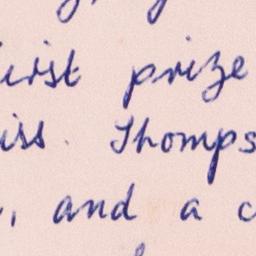 irst prize
iss. Thomps
, and a c